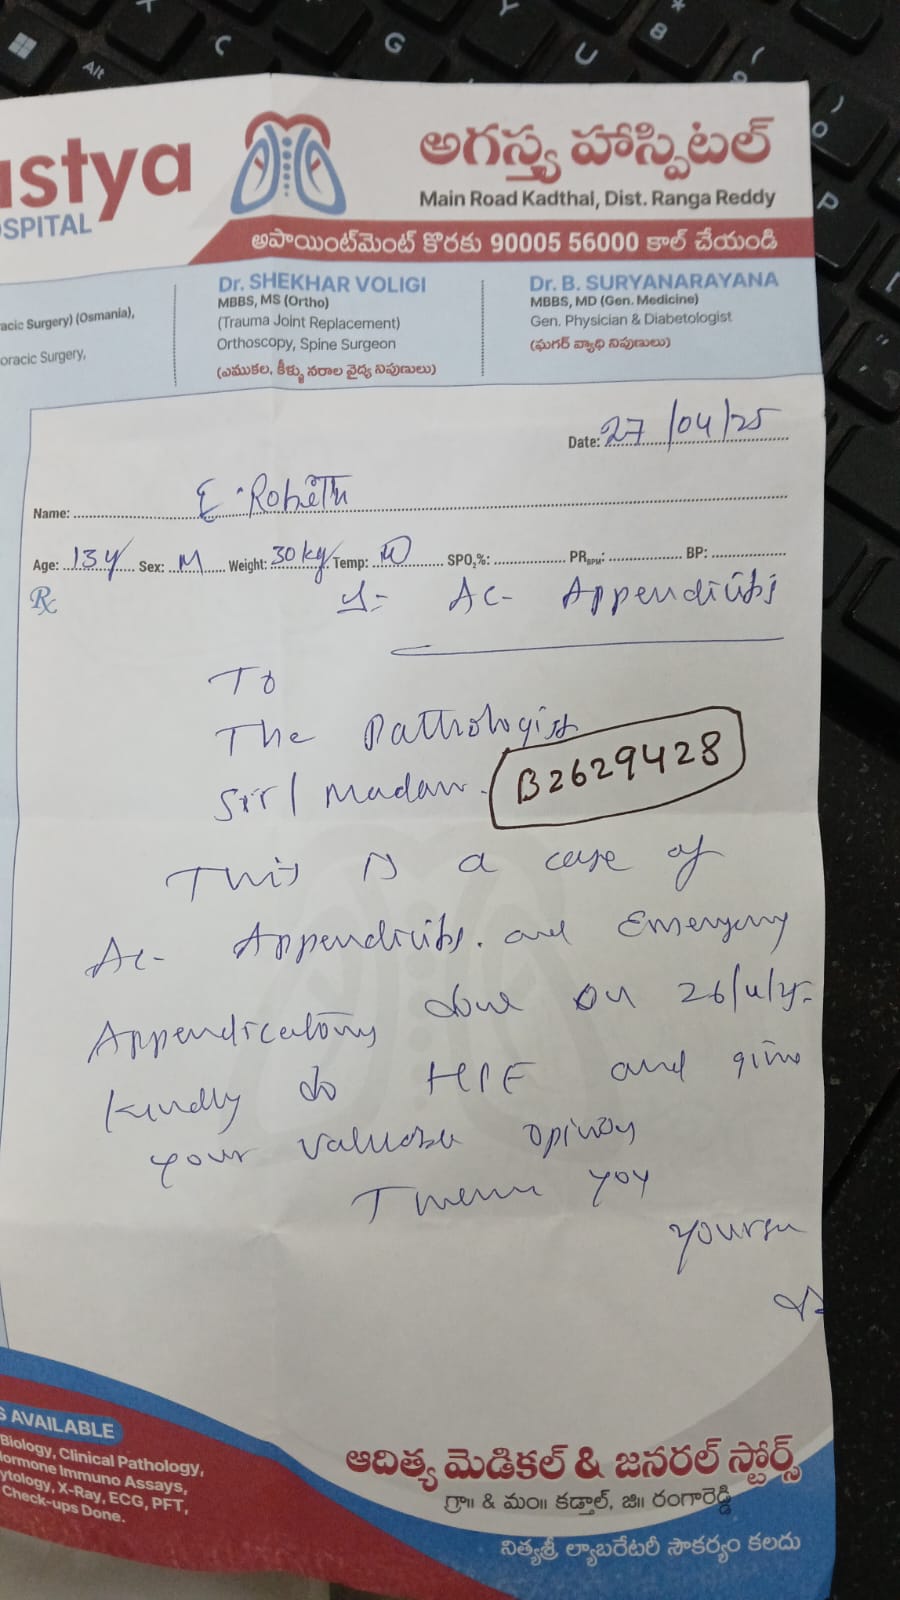 astya
OSPITAL
అగస్త్య హాస్పిటల్
Main Road Kadthal, Dist. Ranga Reddy
అపాయింట్‌మెంట్ కొరకు 90005 56000 కాల్ చేయండి
acic Surgery) (Osmania),
oracic Surgery,
Dr. SHEKHAR VOLIGI
MBBS, MS (Ortho)
(Trauma Joint Replacement)
Orthoscopy, Spine Surgeon
(ఎముకల, కీళ్ళు నరాల వైద్య నిపుణులు)
Dr. B. SURYANARAYANA
MBBS, MD (Gen. Medicine)
Gen. Physician & Diabetologist
(షుగర్ వ్యాధి నిపుణులు)
Date: 27/04/25
Name: E. Rohith
Age: 13y Sex: M Weight: 30kg Temp: SPO₂%: PR BPM: BP:
Rx
Ac- Appendicitis
To
The Pathologist
Sir/ Madam.
B2629428
This is a case of
Ac- Appendicitis. and Emergency
Appendicatomy done on
Kindly do HPE and give
your valuable opinoy
yoy
S AVAILABLE
Biology, Clinical Pathology,
ormone Immuno Assays,
ytology, X-Ray, ECG, PFT,
Check-ups Done.
ఆదిత్య మెడికల్ & జనరల్ స్టోర్స్
గ్రా॥ & మం॥ కడ్తాల్, జి॥ రంగారెడ్డి
నిత్యశ్రీ ల్యాబరేటరీ సౌకర్యం కలదు